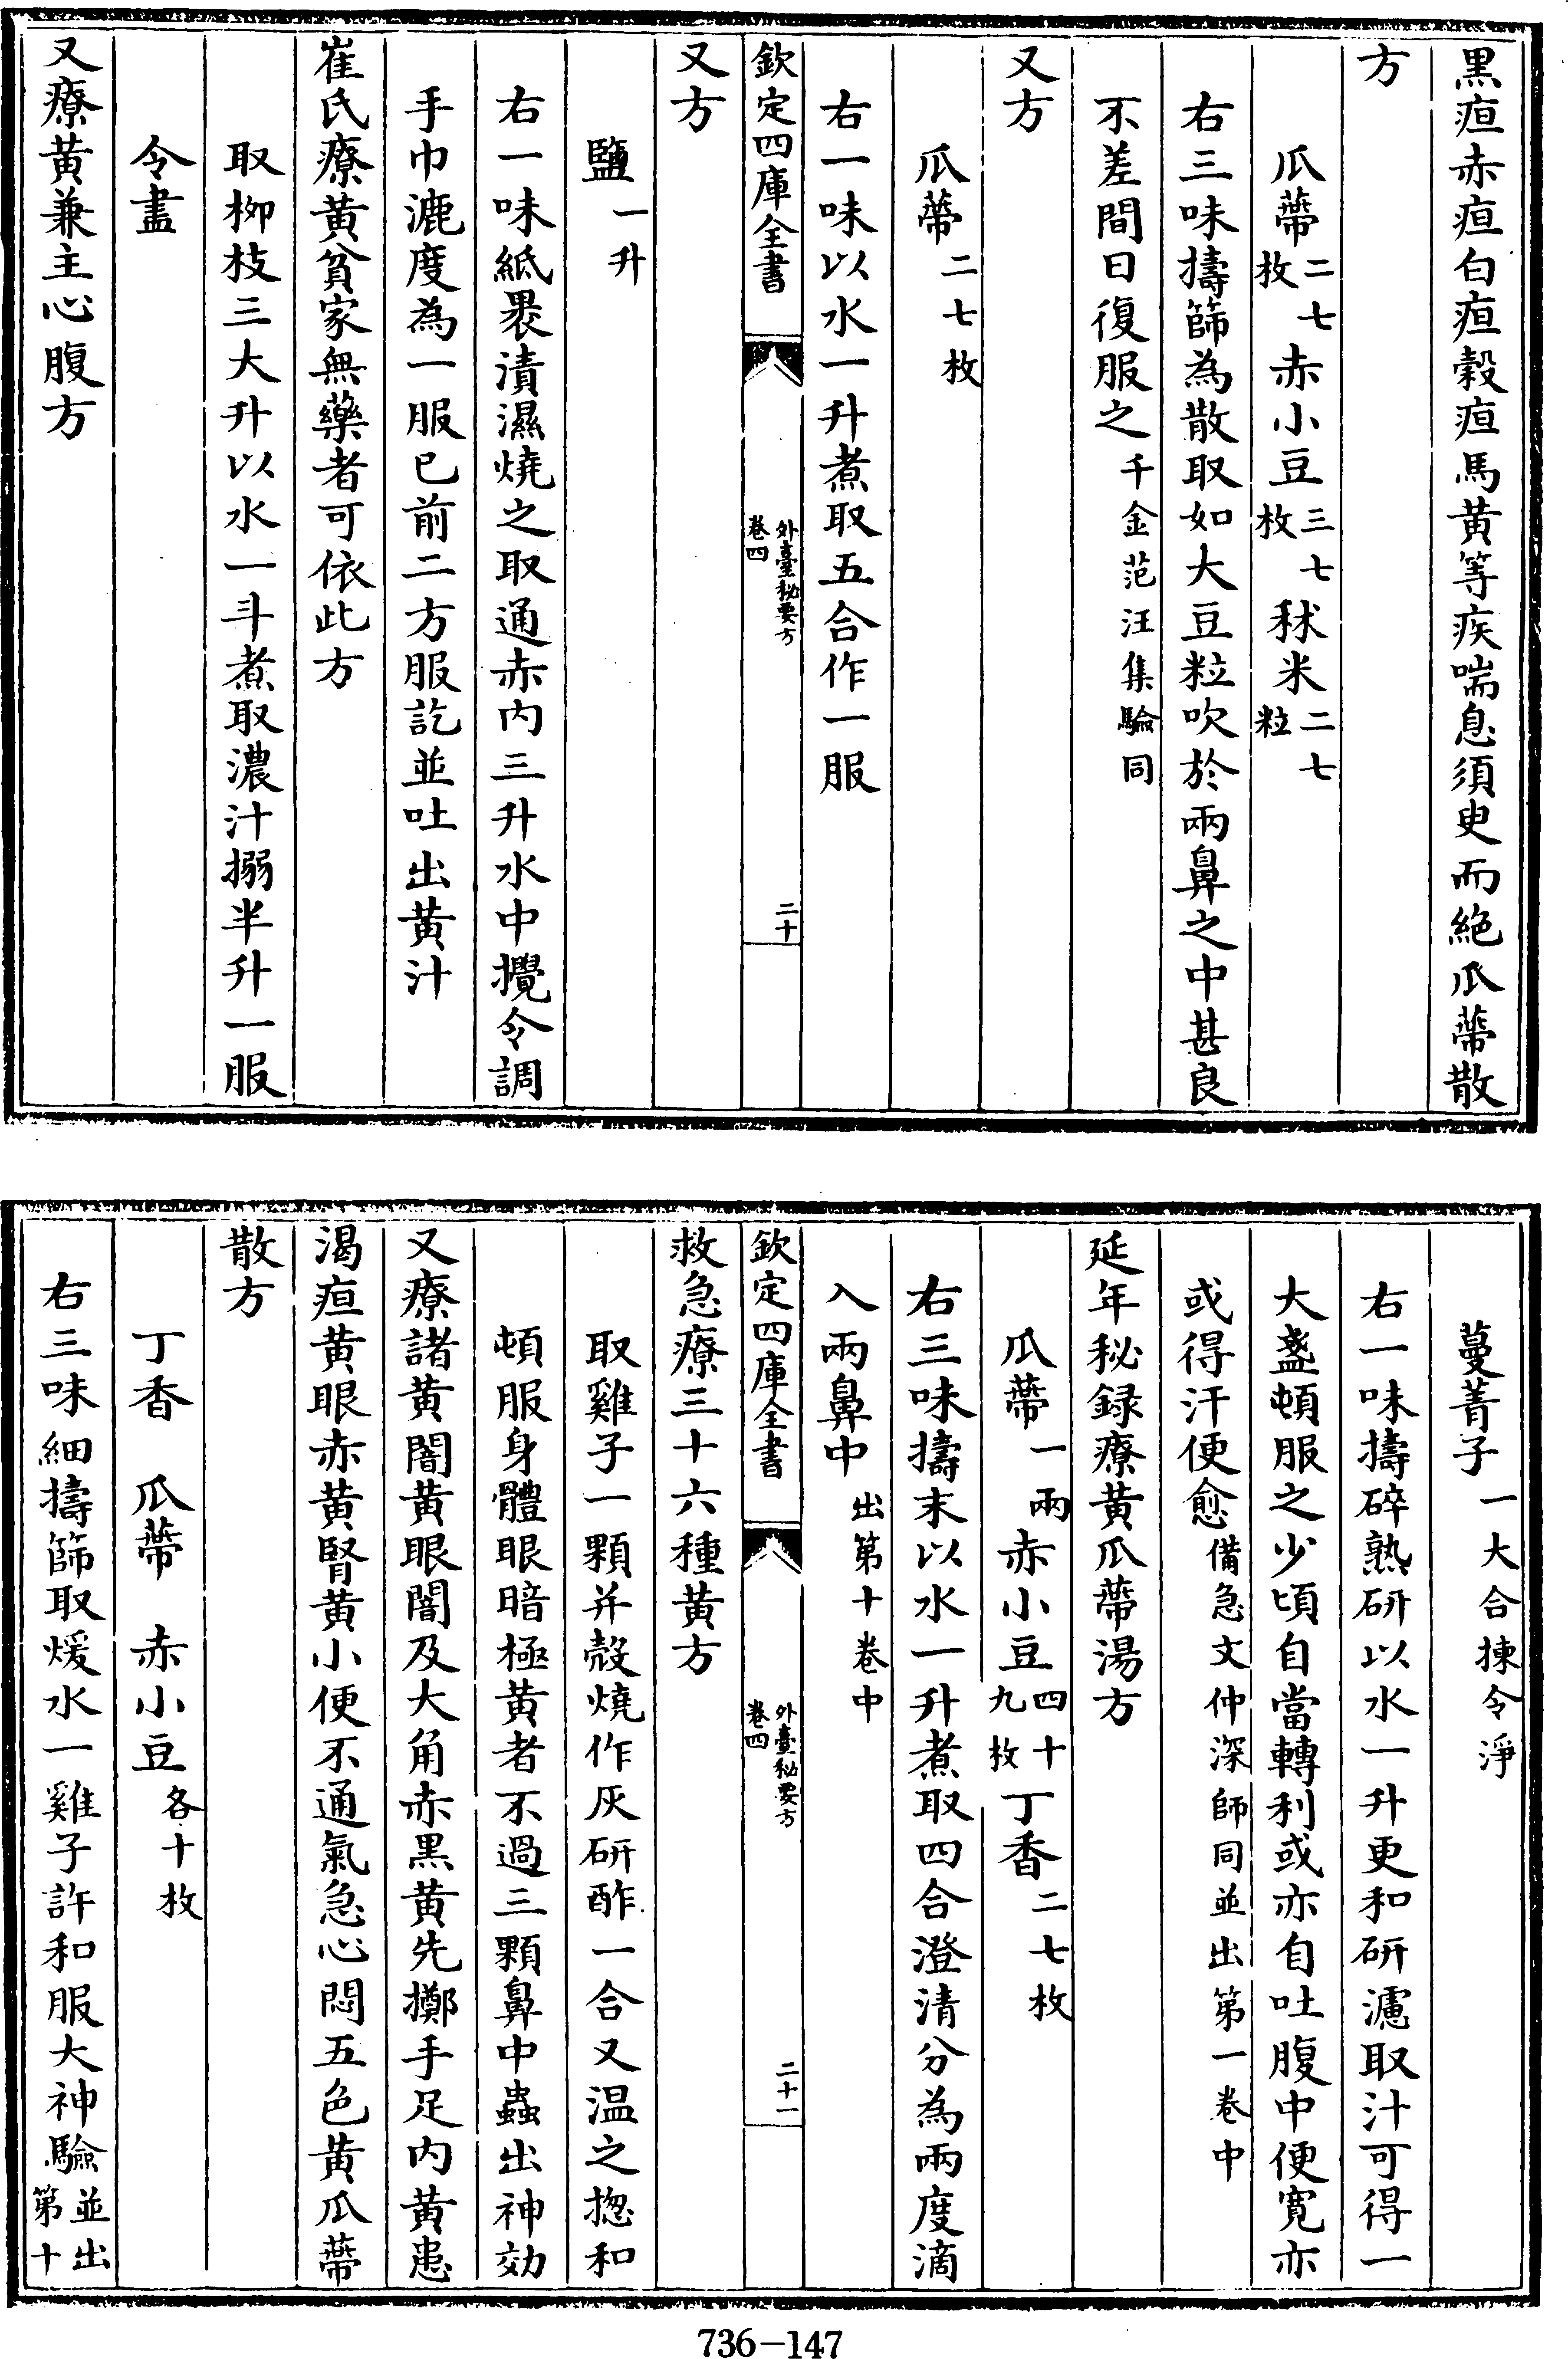 黒疸赤疸白疸穀疸馬黄等疾喘息須臾而絶瓜蔕散
方
瓜蔕二七枚赤小豆三七枚秫米二七粒
右三味擣篩為散取如大豆粒吹於兩鼻之中甚良
不差間日復服之千金范汪集驗同
又方
瓜蔕二七枚
右一味以水一升煮取五合作一服
欽定四庫全書
外臺秘要方
卷四
二十
又方
鹽一升
右一味紙裹漬濕燒之取通赤内三升水中攪令調
手巾漉度為一服已前二方服訖並吐出黄汁
崔氏療黄貧家無藥者可依此方
取柳枝三大升以水一斗煮取濃汁搦半升一服
令盡
又療黄兼主心腹方
蔓菁子一大合揀令淨
右一味擣碎熟研以水一升更和研濾取汁可得一
大盞頓服之少頃自當轉利或亦自吐腹中便寛亦
或得汗便愈備急文仲深師同並出第一卷中
延年秘録療黄瓜蔕湯方
瓜蔕一兩赤小豆四十九枚丁香二七枚
右三味擣末以水一升煮取四合澄清分為兩度滴
入兩鼻中出第十卷中
欽定四庫全書
外臺秘要方
卷四
二十一
救急療三十六種黄方
取雞子一顆并殼燒作灰研酢一合又温之揔和
頓服身體眼暗極黄者不過三顆鼻中蟲出神効
又療諸黄闇黄眼闇及大角赤黒黄先擲手足内黄患
渴疸黄眼赤黄腎黄小便不通氣急心悶五色黄瓜蔕
散方
丁香　瓜蔕　赤小豆各十枚
右三味細擣篩取煖水一雞子許和服大神驗並出第十
736－147